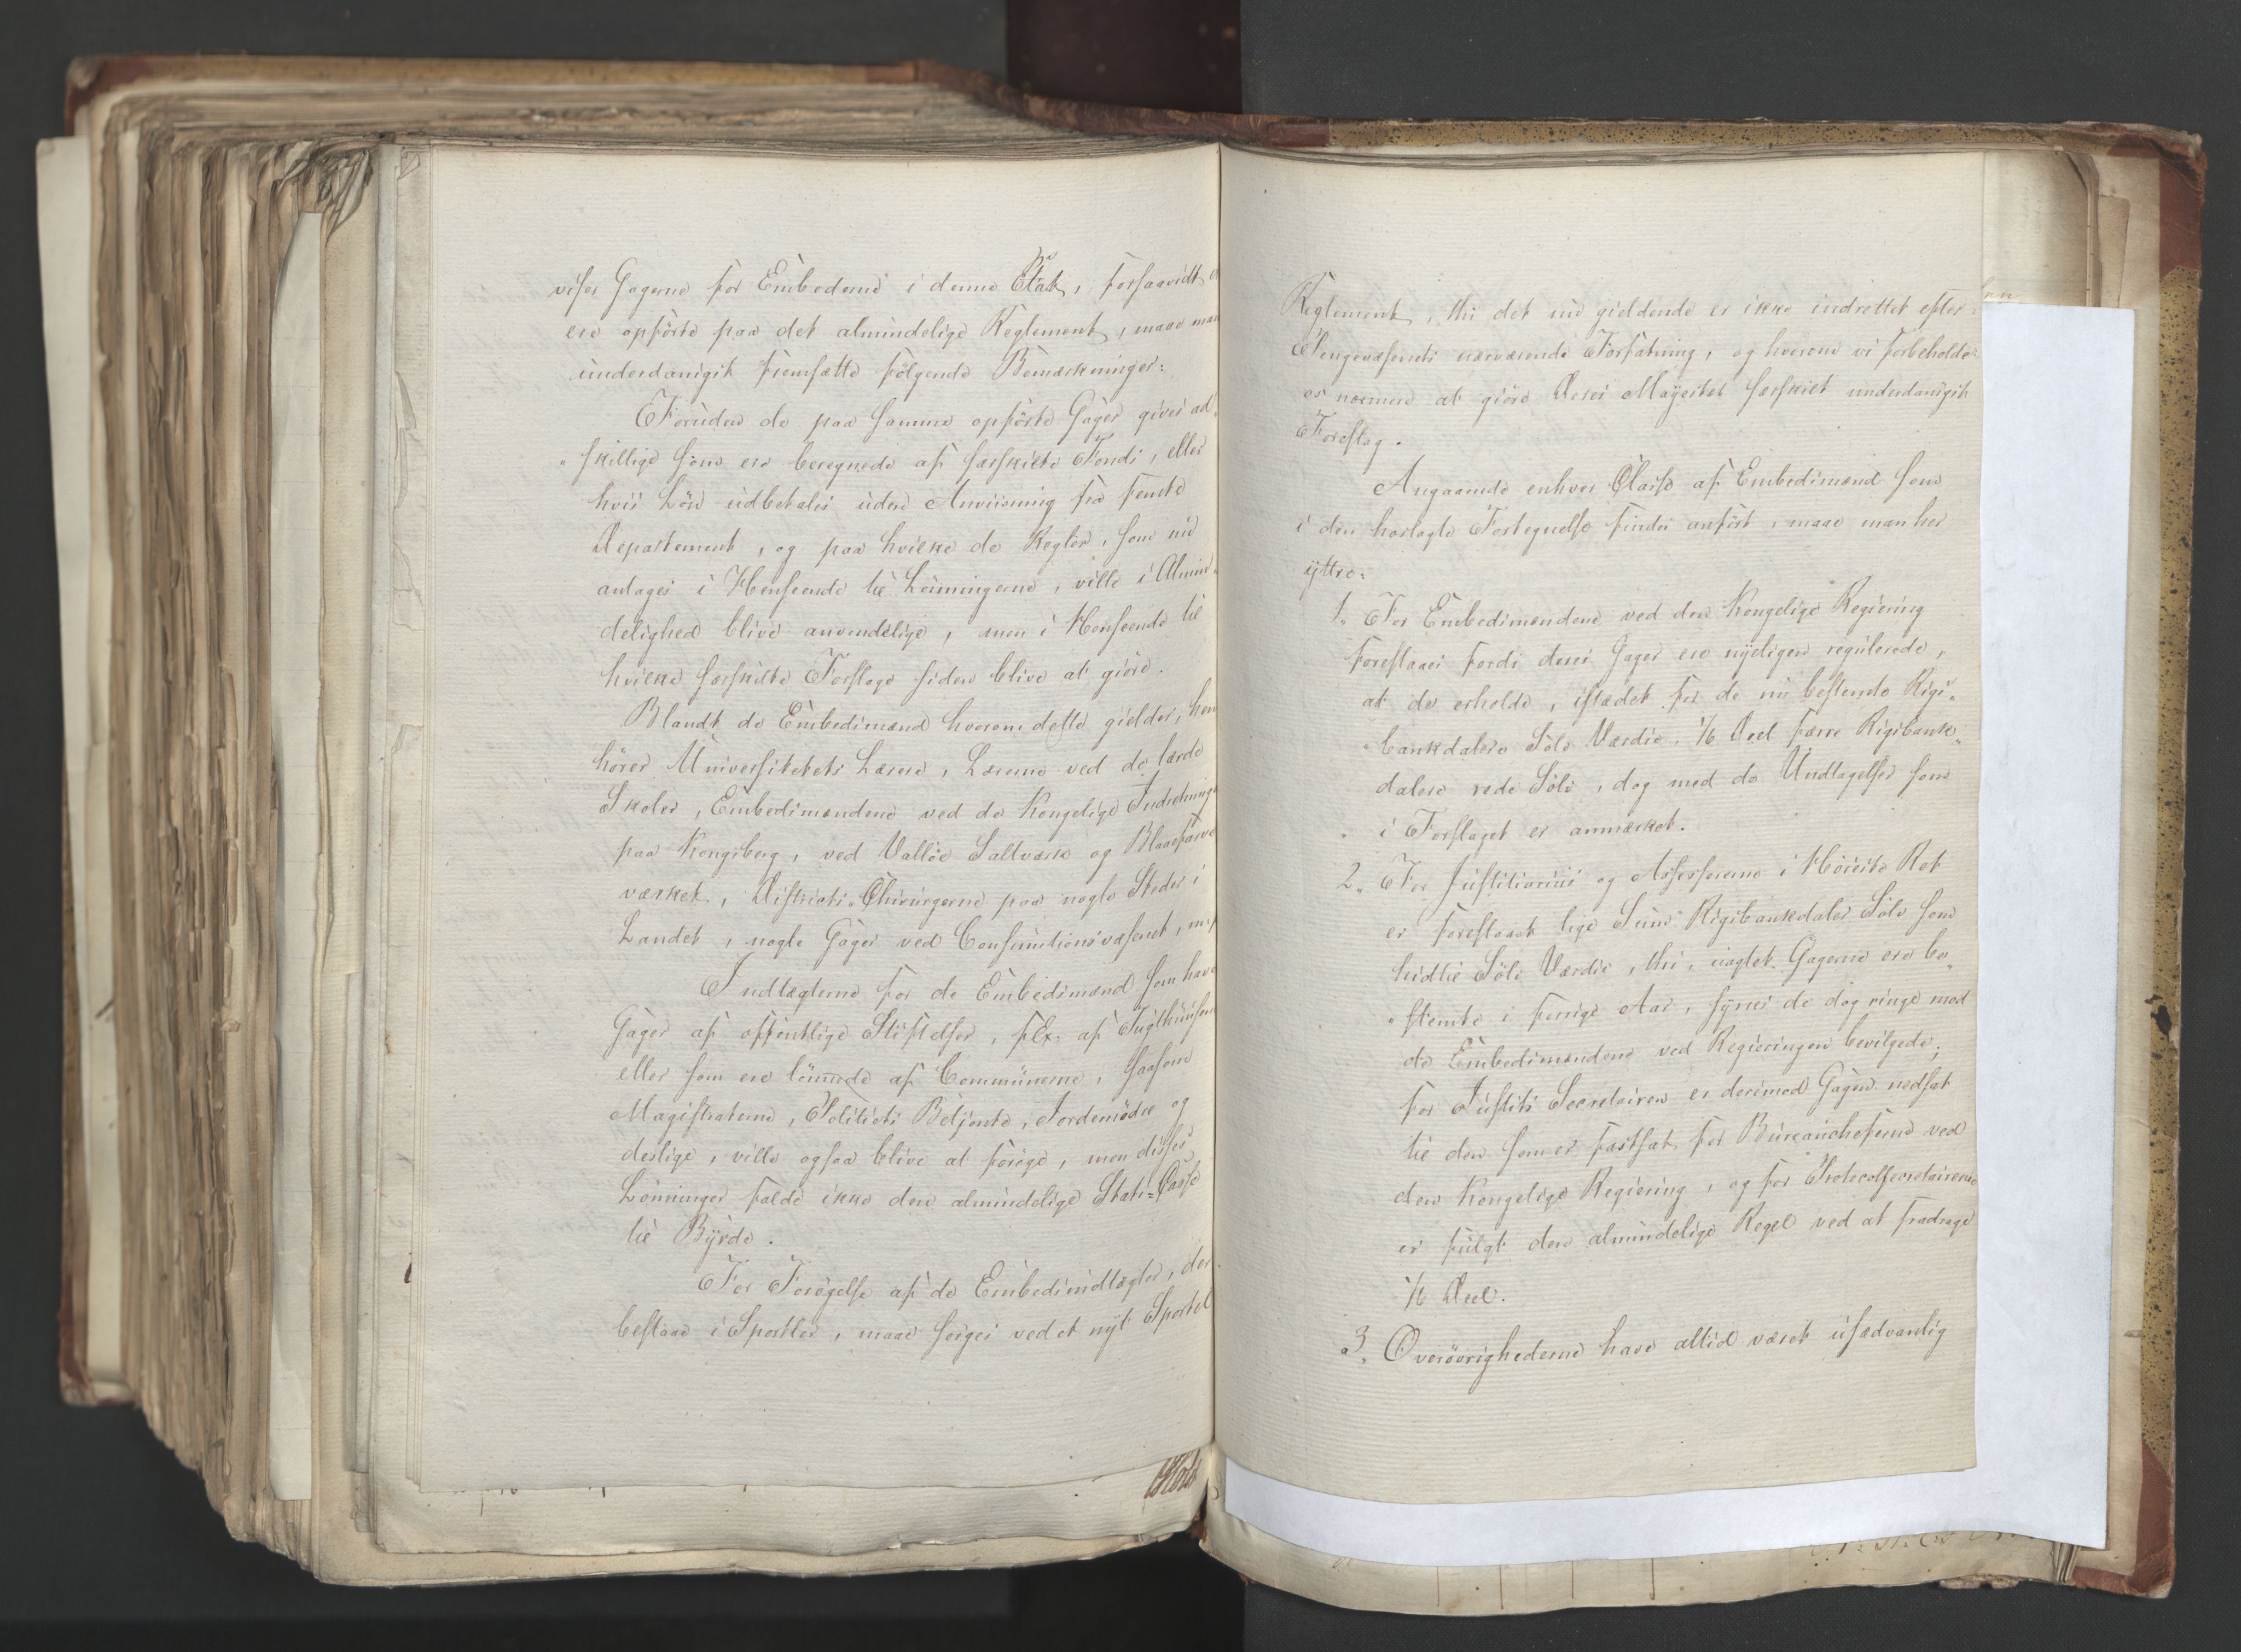 viser Gagerne for Embederne i denne Etat, forsaavidt
ere opførte paa det almindelige Reglement, maae man
underdanigst fremsætte følgende Bemærkninger:
Foruden de paa samme opførte Gager gives ad„
„skillige som ere beregnede af særskilte Fonds, eller
hvis Løn udbetales uden Anviisning fra femte
Departement, og paa hvilke de Regler, som nu
antages i Henseende til Lønningerne, ville i Almin„
delighed blive anvendelige, men i Henseende til
hvilke særskilte Forslage siden blive at giøre.
Blandt de Embedsmænd hvorom dette gielder, hen
hører Universitetets Lærere, Lærerne ved de lærde
Skoler, Embedsmændene ved de Kongelige Indretninge
paa Kongsberg, ved Valløe Saltværk og Blaafarve
værket, Districts-Chirurgerne paa nogle Steder i
Landet, nogle Gager ved Consumtionsvæsenet,
Indtægterne for de Embedsmænd som have
Gager af offentlige Stiftelser, f Ex: af Tugthuusene
eller som ere lønnede af Communerne, saasom
Magistraterne, Politiets Betjente, Jordemødre og
deslige, ville ogsaa blive at forøge, men disses
Lønninger falde ikke den almindelige Stats-Casse
til Byrde.
For Forøgelse af de Embedsindtægter, der
bestaae i Sportler, maae sørges ved et nyt Sportel
Reglement, thi det nu gieldende er ikke indrettet efter
Pengevæsenets nærværende Forfatning, og hvorom vi forbeholde
os nærmere at giøre Deres Majestet særskilt underdanigst
Foreslag.
Angaaende enhver Classe af Embedsmænd som
i den hoslagte Fortegnelse findes anført, maae man her
yttre:
1. For Embedsmændene ved den Kongelige Regiering
foreslaaes fordi deres Gager ere nyeligen regulerede,
at de erholde, istædet for de nu bestemte Rigs„
„bankdalere Sølv Værdie, 1/6 Deel færre Rigsbank„
dalere rede Sølv, dog med de Undtagelser som
i Forslaget er anmærket.
2. For Justitiarius og Assessorerne i Høieste Ret
er foreslaaet lige Sum Rigsbankdaler Sølv som
hidtil Sølv Værdie, thi, uagtet Gagerne ere be„
„stemte i forrige Aar, synes de dog ringe mod
de Embedsmændene ved Regieringen bevilgede;
for Justits Secretairen er derimod Gagen nedsat
til den som er fastsat for Bureauchefene ved
den Kongelige Regiering, og for Protocolsecretairerne
er fulgt den almindelige Regel ved at fradrage
1/6 Deel.
3. Overøvrighederne have altid været usædvanlig